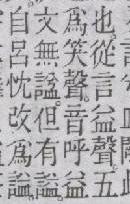 也從言益聲五
爲笑聲。音呼益
文無諡。但有謚
自呂忱改爲諡